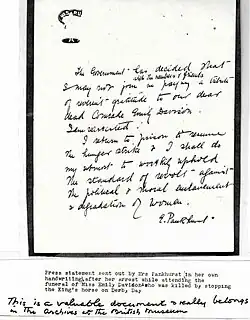 The Government has decided that
with the members & friends
I may not join in paying a tribute
of reverent gratitude to our dear
dead Comrade Emily Davison.
I am rearrested.
I return to prison to resume
the hunger strike & I shall do
my utmost to worthily uphold
the standard of revolt against
the political & moral enslavement
& degradation of women.
E. Pankhurst
Press statement sent out by Mrs Pankhurst in her own
handwriting, after her arrest while attending the
funeral of Miss Emily Davidson who was killed by stopping
the King's horse on Derby Day
This is a valuable document & really belongs
in the archives at the British Museum